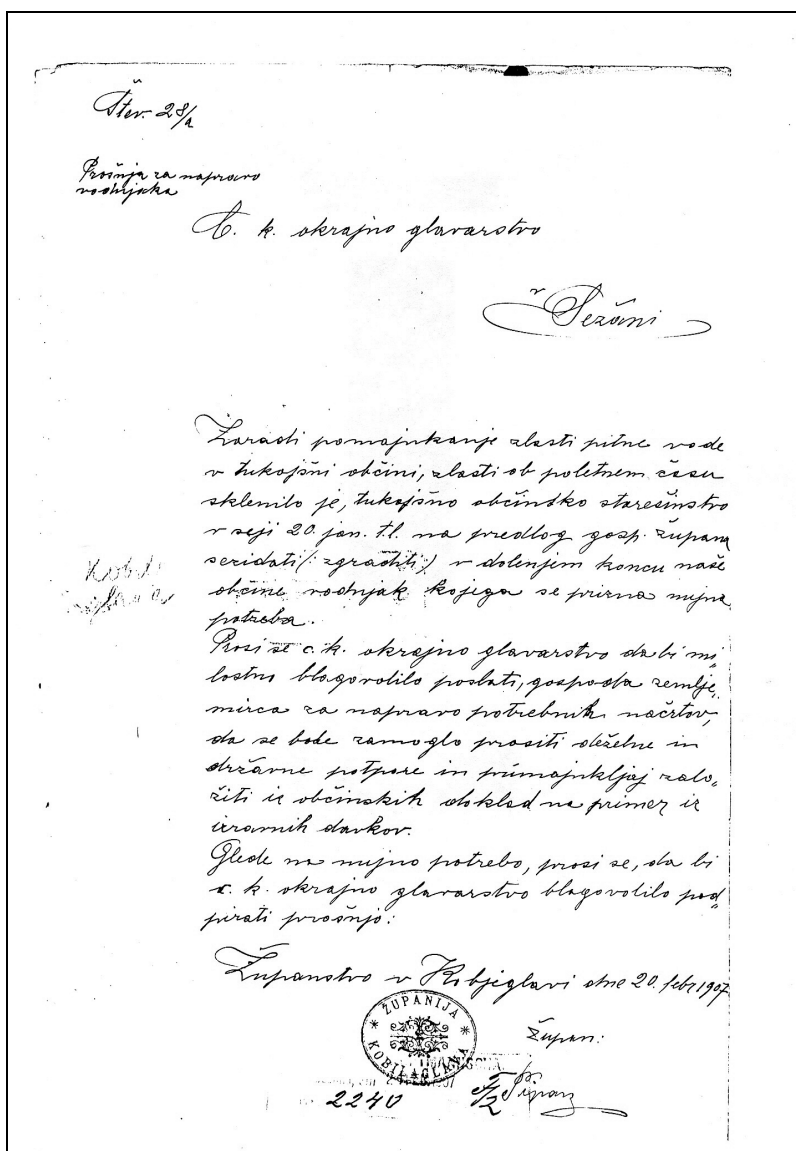 Štev. 28/a
Prošnja za napravo
vodnjaka
C. k. okrajno glavarstvo
v Sežani
Zaradi pomajnkanje zlasti pitne vode
v tukajšni občini, zlasti ob poletnem času
sklenilo je, tukajšno občinsko starešinstvo
v seji 20. jan. t.l. na predlog gosp. župana
sezidati (zgraditi) v dolenjem koncu naše
občine vodnjak kojega se prizna nujna
potreba.
Prosi se c. k. okrajno glavarstvo da bi mi„
lostno blagovolilo poslati, gospoda zemlje„
mirca za napravo potrebnih načrtov,
da se bode zamoglo prositi deželne in
državne potpore in primajnkljaj zalo„
žiti iz občinskih doklad na primer iz
izravnih davkov.
Glede na nujno potrebo, prosi se, da bi
c. k. okrajno glavarstvo blagovolilo pod„
pirati prošnjo:
Županstvo v Kobjeglavi dne 20. febr 1907
ŽUPANIJA
KOBILAGLAVA
Župan:
2240